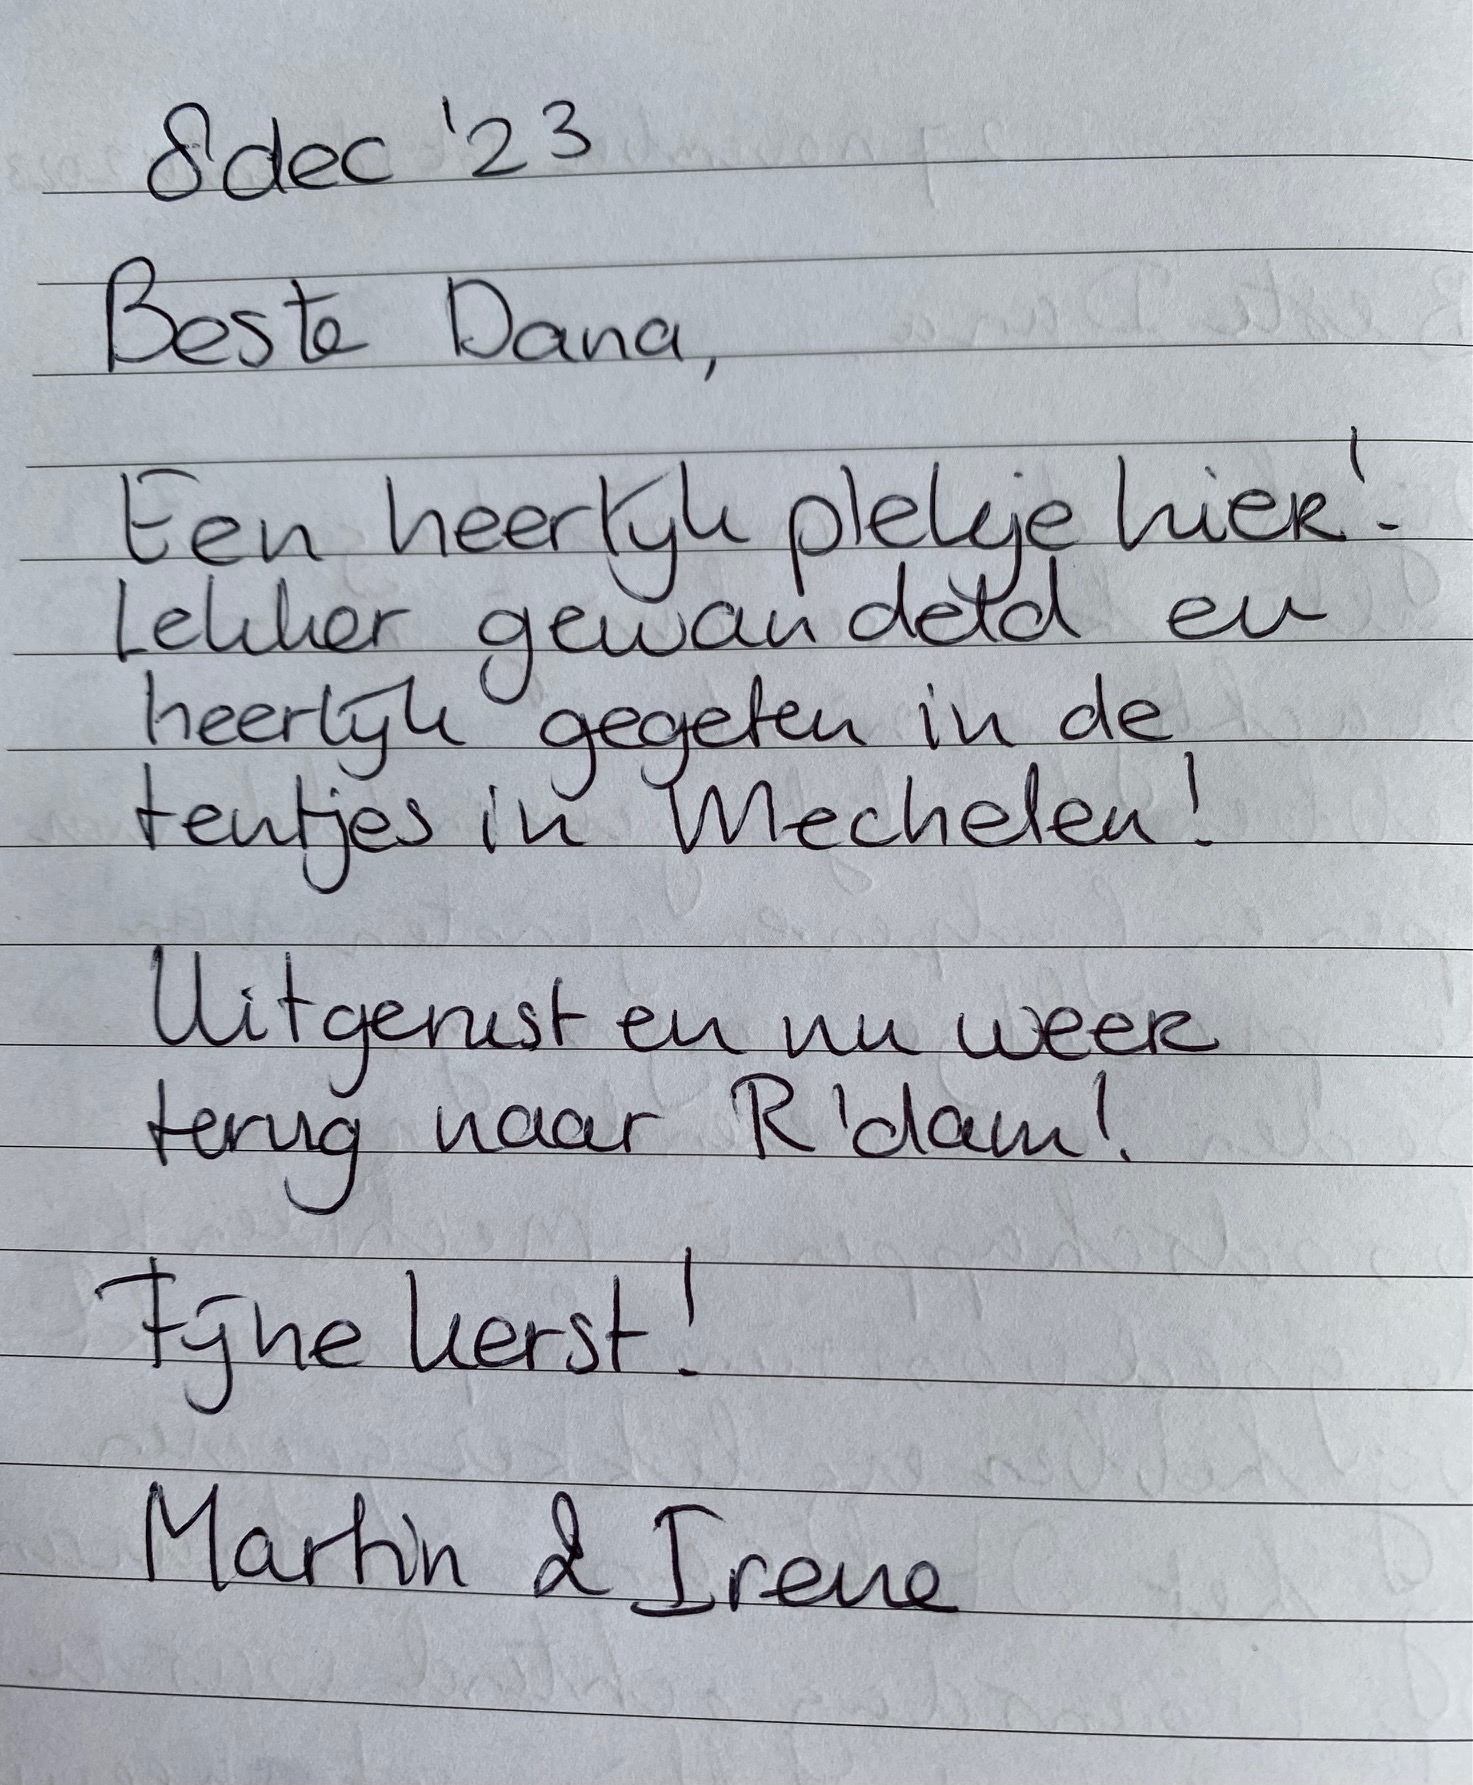 8 dec '23
Beste Dana,
Een heerlijk plekje hier!
Lekker gewandeld en
heerlijk gegeten in de
tentjes in Mechelen!
Uitgerust en nu weer
terug naar R'dam!
Fijne kerst!
Martin & Irene